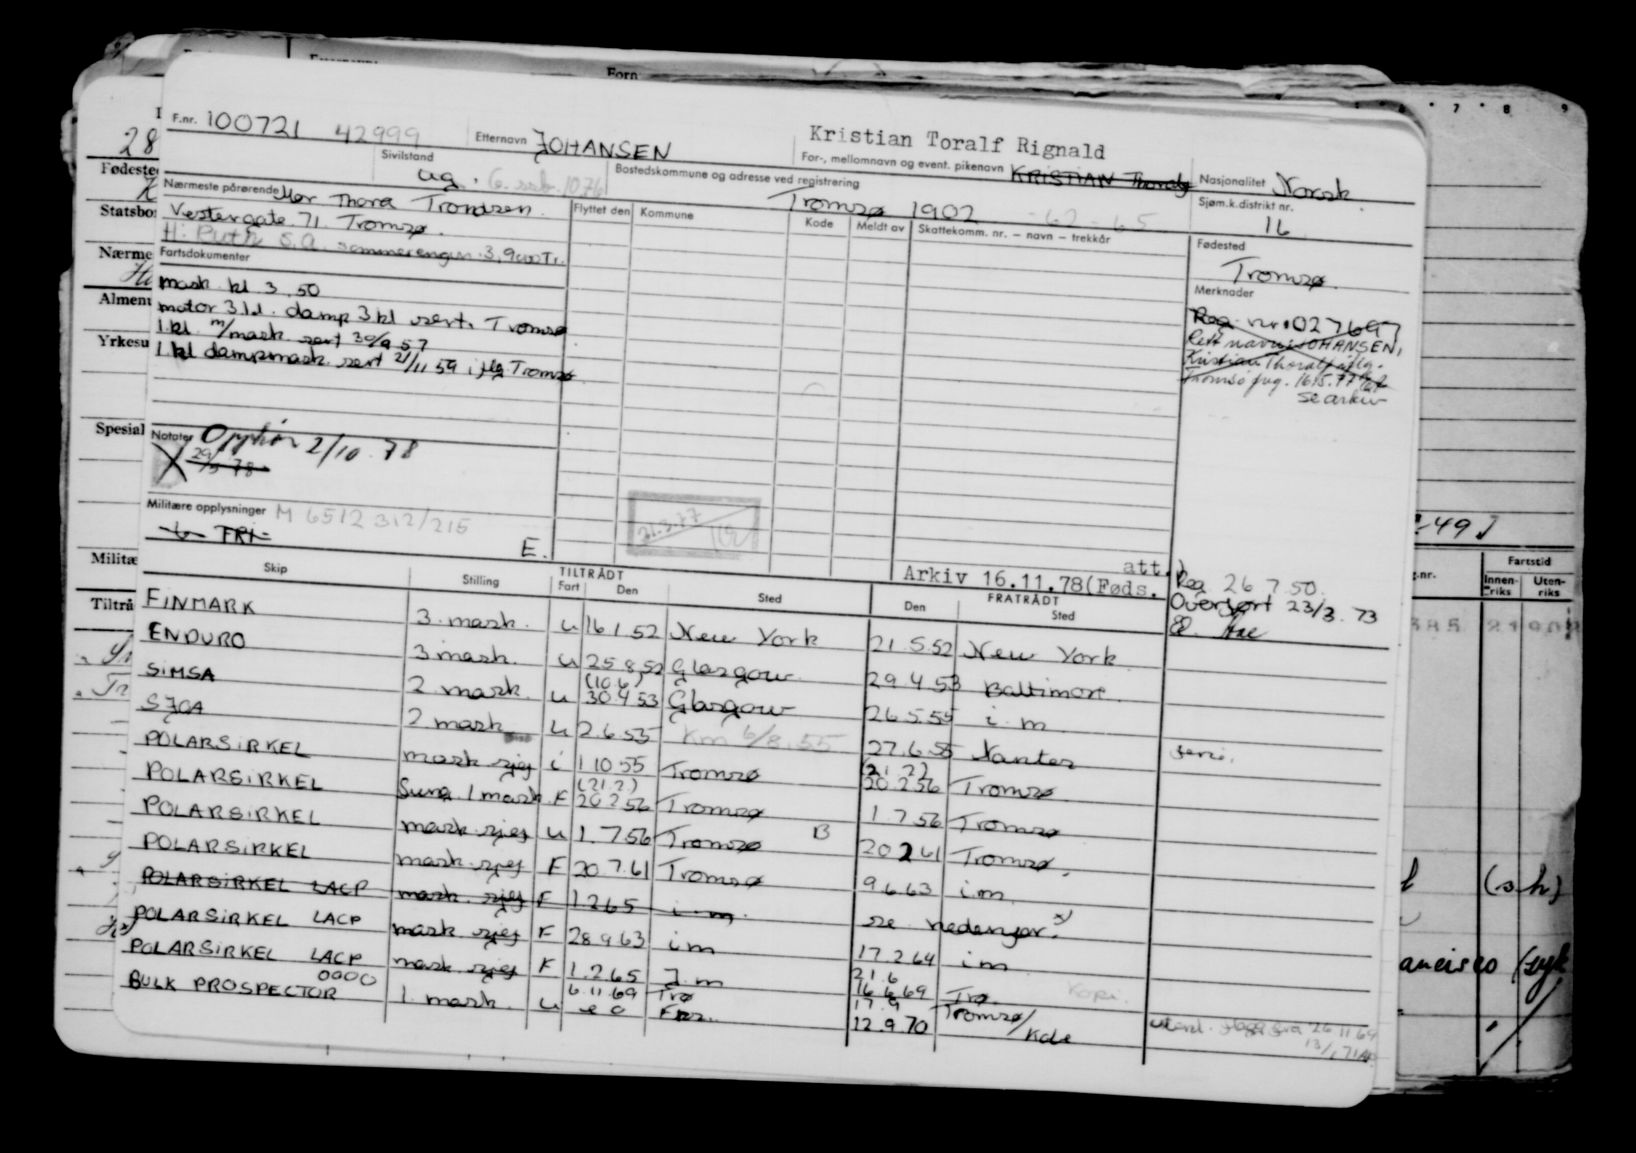 F.nr. 100721 42999 Etternavn JOHANSEN Kristian Toralf Rignald
For-, mellomnavn og event. pikenavn KRISTIAN Thoralf Nasjonalitet Norsk.
Sivilstand ug. Bostedskommune og adresse ved registrering Tromsø 1902 -62-65 Sjøm.k.distrikt nr. 16
Nærmeste pårørende Mor Thora Trondsen.
Vestergate 71. Tromsø.
H: Ruth S.A.
Flyttet den Kommune Kode Meldt av Skattekomm. nr. – navn – trekkår
Fødested
Tromsø.
Merknader
Reg. nr. 027697
Rett navn: JOHANSEN,
Kristian Thoralf iflg.
Tromsø jug. 16.5.77
se arkiv
Fartsdokumenter
mask. kl 3 50
motor 3 kl. damp 3 kl sert. Tromsø
1 kl. m/mask. sert 30/9 57
1 kl dampmask. sert 21/11 59 iflg Tromsø
Notater Opphør 2/10.78
29/5 78
Militære opplysninger M 6512 312/215
FRI
E.
21.3.77
Arkiv 16.11.78(Føds.att.)
Reg 26.7.50.
Overført 23/3.73
Skip Stilling TILTRÅDT Fart Den Sted FRATRÅDT Den Sted
FINMARK 3. mask. u 16.1.52 New York 21.5.52 New York
ENDURO 3 mask. u 25.8.52 Glasgow 29.4.53 Baltimore
SIMSA 2 mask. u (10.6) 30.4.53 Glasgow 26.5.55 i.m.
SJOA 2 mask u 2.6.55 Km 6/8.55 27.6.55 Nantes
POLARSIRKEL mask.sjef i 1.10.55 Tromsø (21.2) 20.2.56 Tromsø
POLARSIRKEL 1 mask. F (21.2.) 20.2.56 Tromsø 1.7.56 Tromsø
POLARSIRKEL mask.sjef u 1.7.56 Tromsø B 20.2.61 Tromsø.
POLARSIRKEL mask.sjef F 20.7.61 Tromsø 9.6.63 i.m.
POLARSIRKEL LACP mask.sjef F 1.2.65 i.m. se nedenfor. x)
POLARSIRKEL LACP mask sjef F 28.9.63 i m 17.2.64 i.m
POLARSIRKEL LACP mask.sjef F 1.2.65 I.m 21.6 16.6.69 Trø. Kopi.
BULK PROSPECTOR 0000 1. mask. u 6.11.69 Trø 17.9 12.9.70 Tromsø/Kde
26.11.69
13/1.71
28
Fødested
Statsbor
Nærme
Almenu
Yrkesu
Spesial
Militæ
Tiltrå
Forn
7 8 9
-49
Fartstid
Innen-riks Uten-riks
(s h)
ancisco (syk